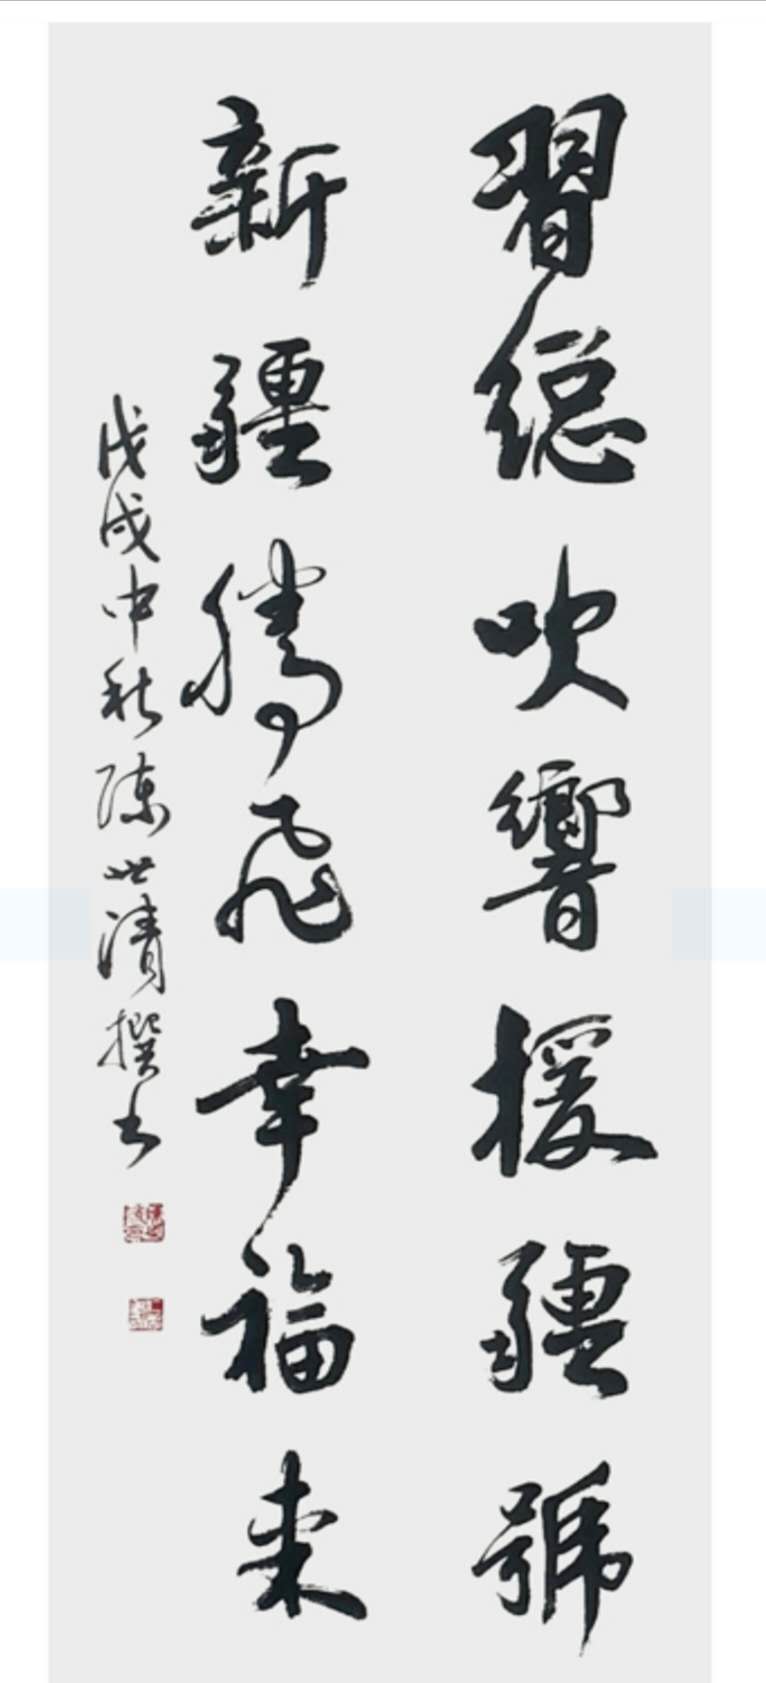 習總吹響援疆號
新疆騰飛幸福來
戊戌中秋陳世清撰书